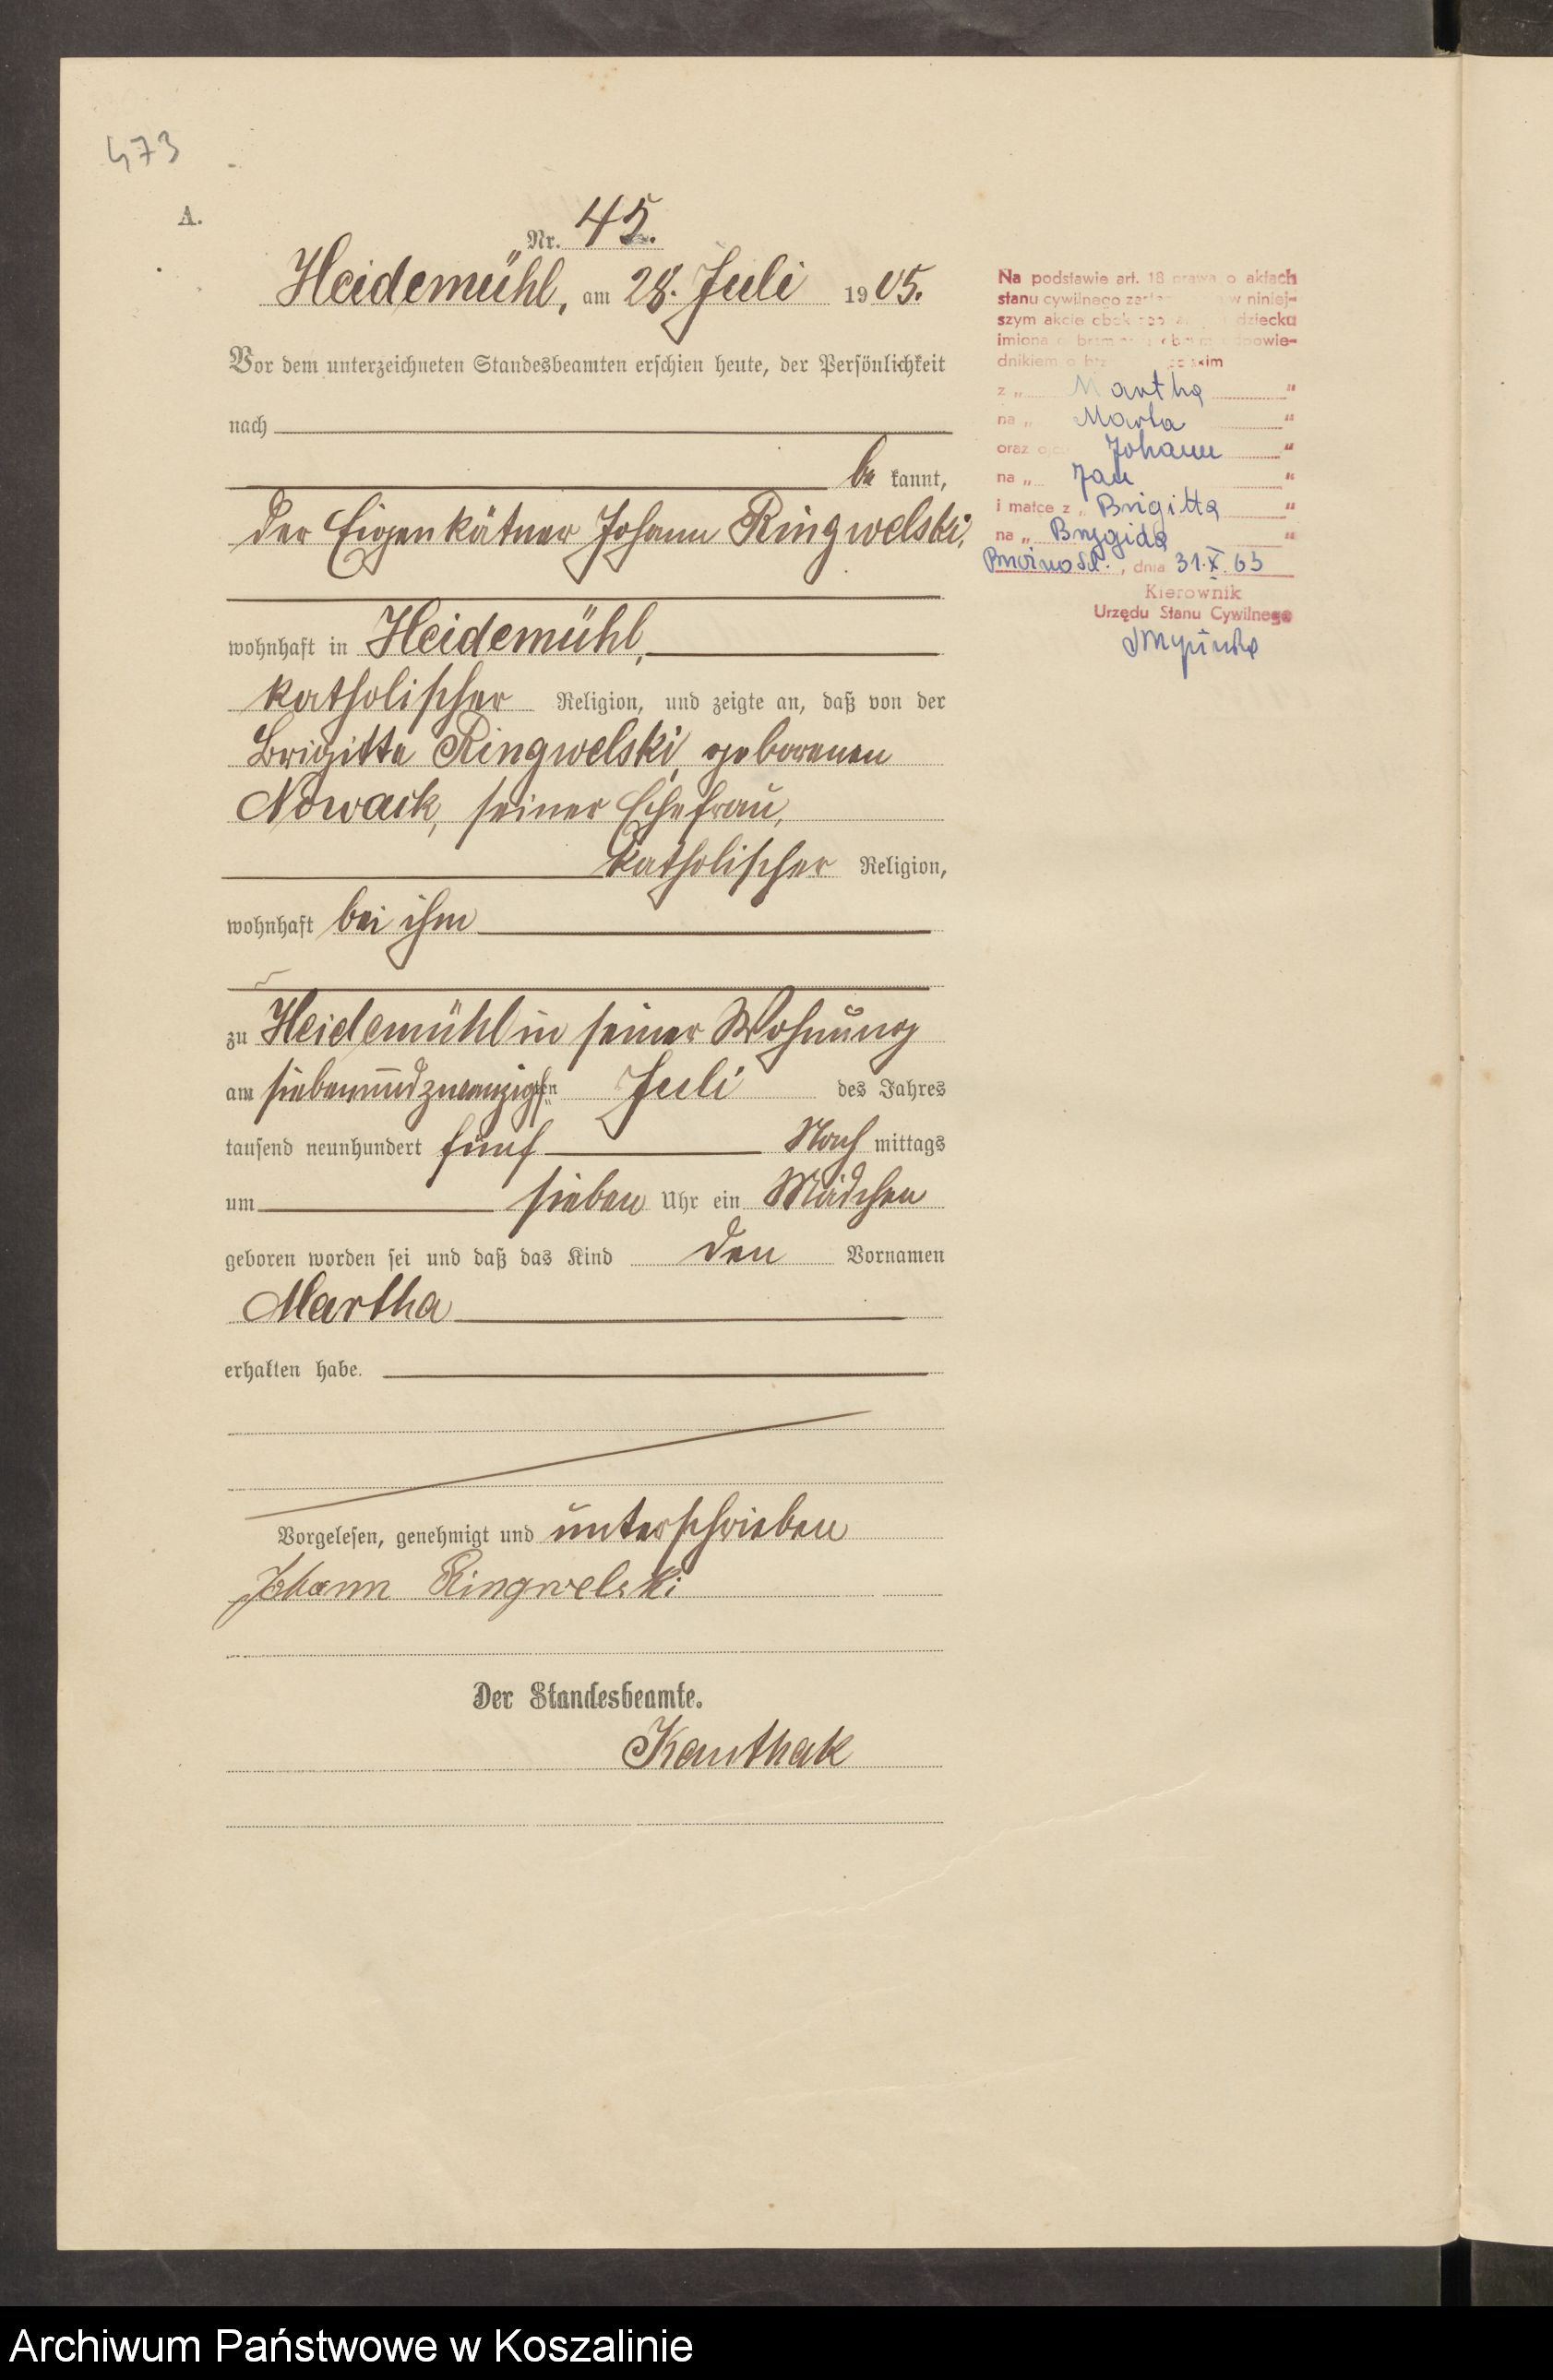 473
A.
Nr. 45.
Heidemühl, am 28. Juli 1905.
Vor dem unterzeichneten Standesbeamten erschien heute, der Persönlichkeit
nach
be kannt,
der Eigenkätner Johann Ringwelski,
wohnhaft in Heidemühl,
katholischer Religion, und zeigte an, daß von der
Brigitte Ringwelski, geborenen
Nowack, seiner Ehefrau,
katholischer Religion,
wohnhaft bei ihm
zu Heidemühl in seiner Wohnung
am siebenundzwanzigsten Juli des Jahres
tausend neunhundert fünf Nachmittags
um sieben Uhr ein Mädchen
geboren worden sei und daß das Kind den Vornamen
Martha
erhalten habe.
Vorgelesen, genehmigt und unterschrieben
Johann Ringwelski
Der Standesbeamte.
Kauthak
Na podstawie art. 18 prawa o aktach
stanu cywilnego w niniej-
szym akcie obok dziecka
imiona o brzm. odpowie-
dnikiem o brz. polskim
z „ Martha "
na „ Marta "
oraz ojca Johann "
na „ Jan "
i matce z „ Brigitta "
na „ Brygida "
dnia 31.X.63
Kierownik
Urzędu Stanu Cywilnego
Archiwum Państwowe w Koszalinie